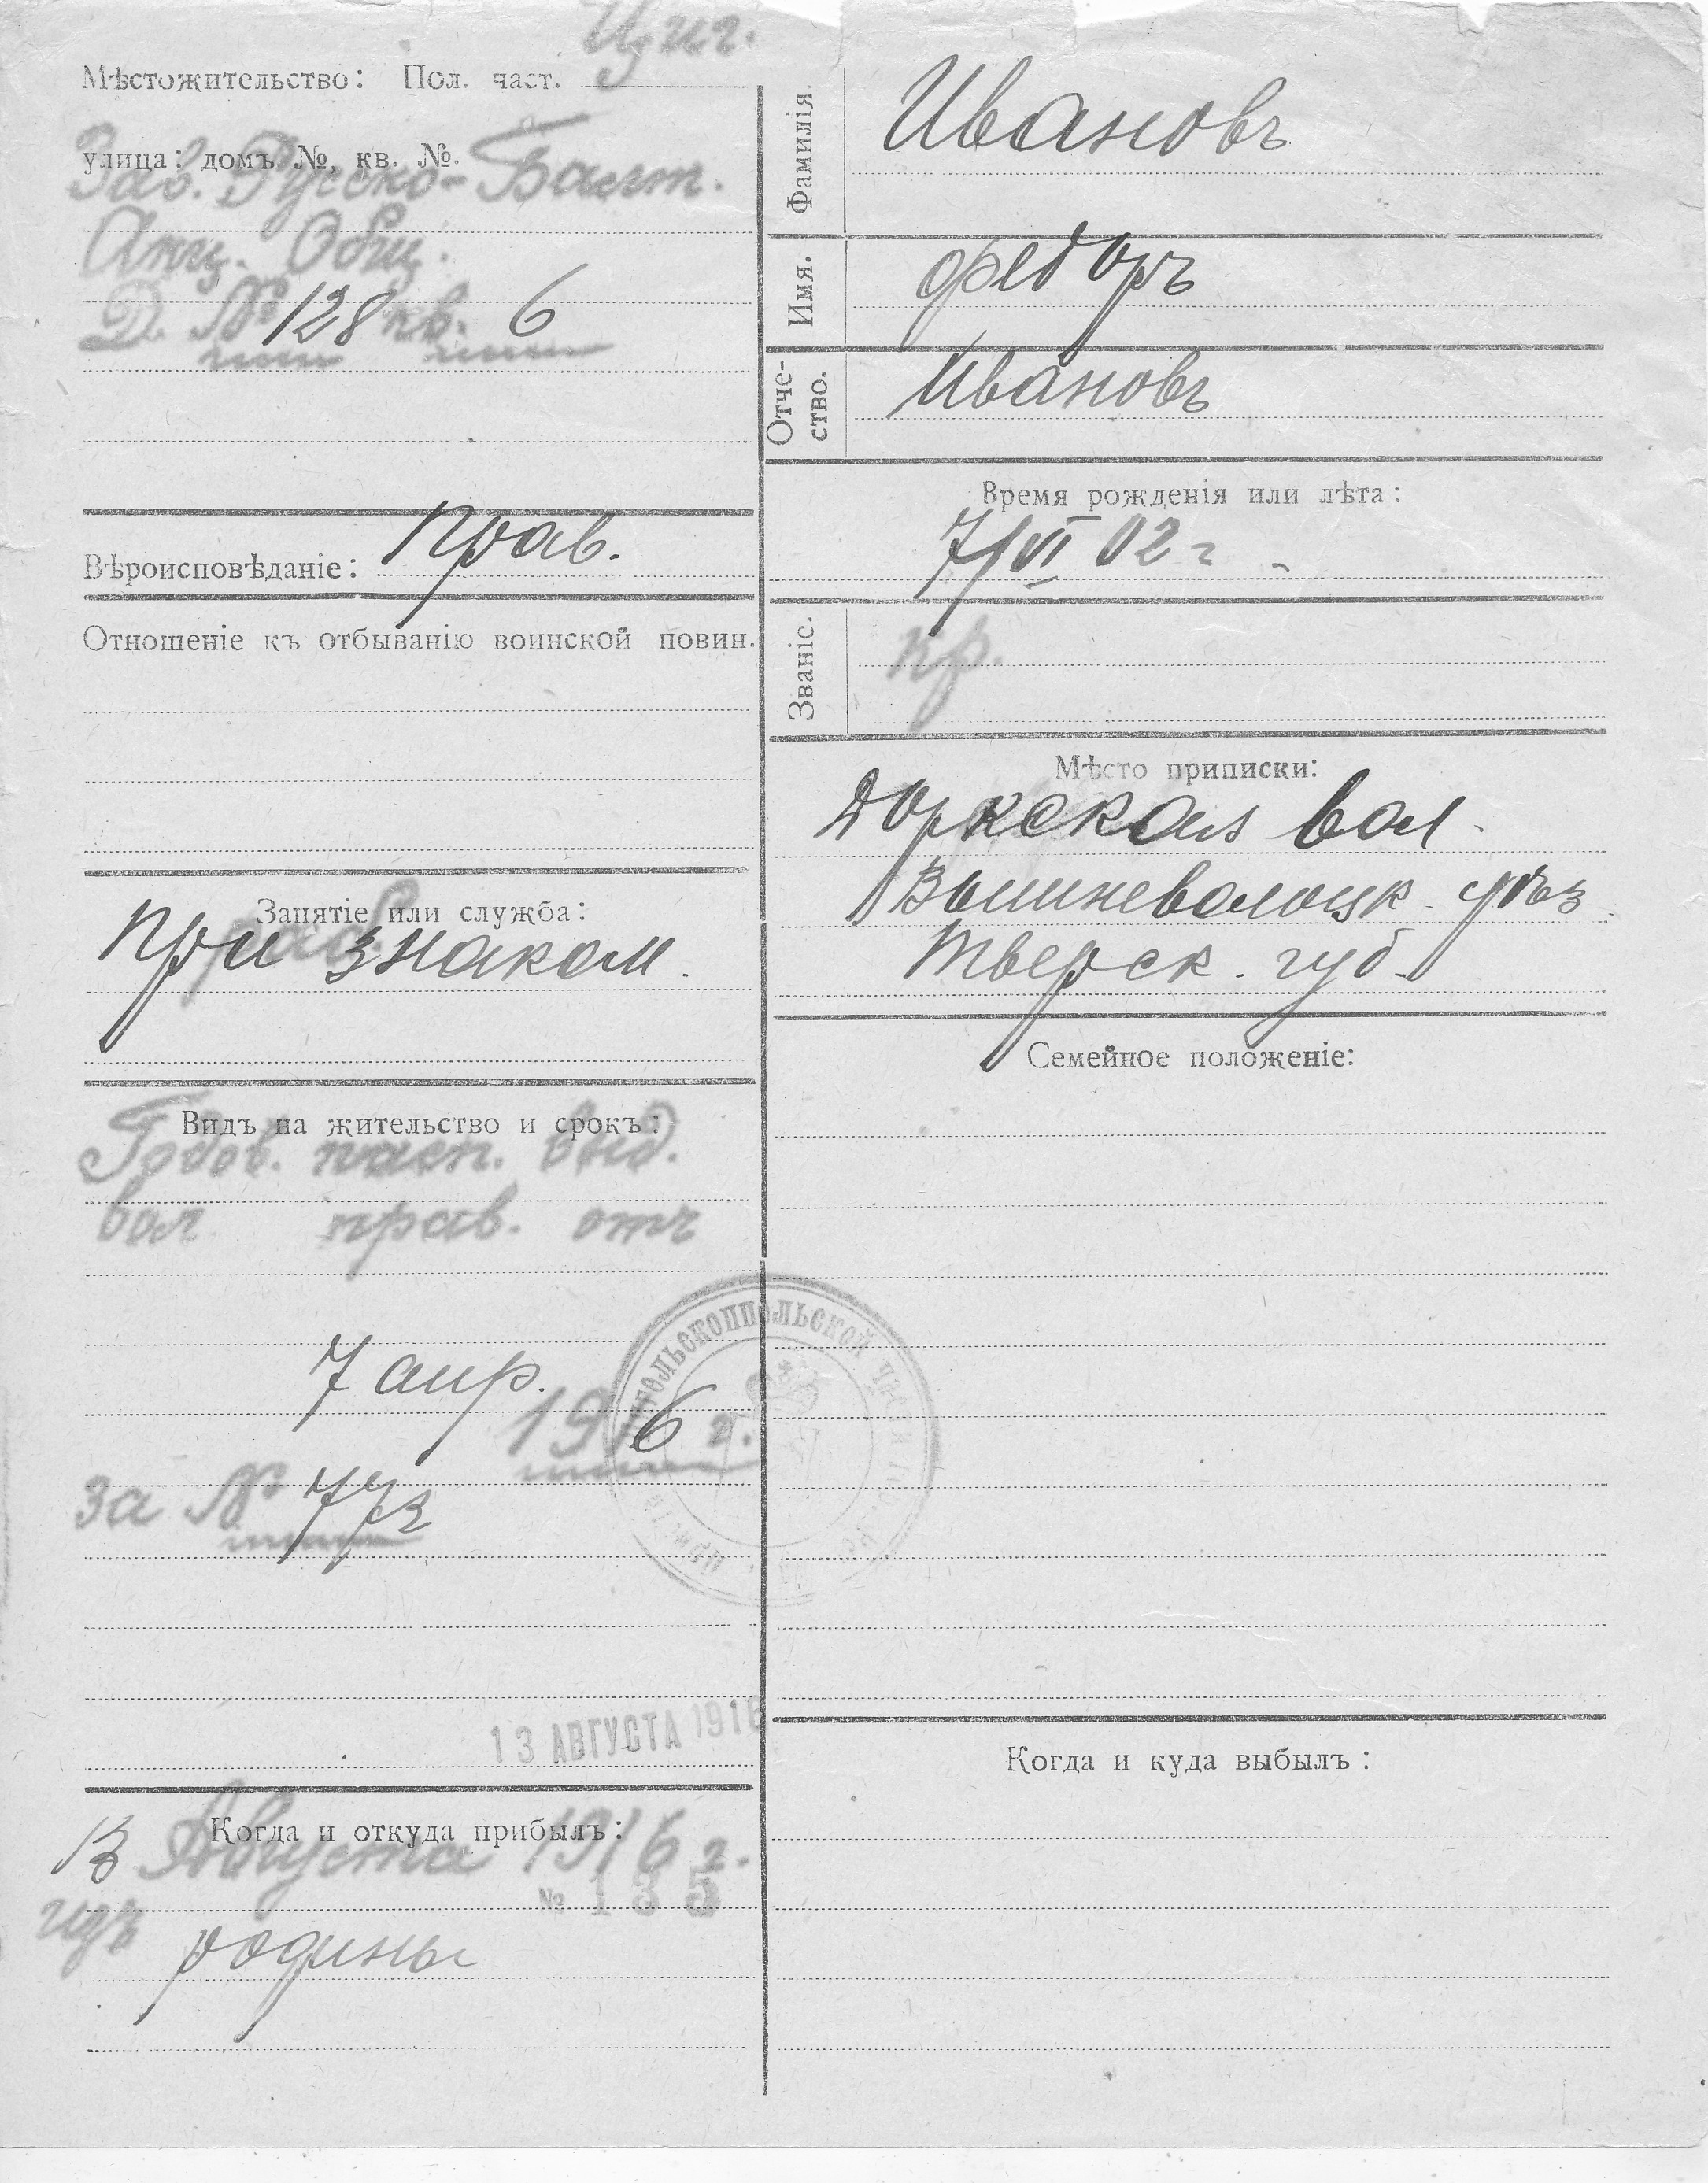 Циг.
Мѣстожительство: Пол. част.
улица: домъ №, кв. №.
Зав. Русско-Балт.
Акц. Общ.
Д. № 128 кв. 6
Вѣроисповѣданіе: Прав.
Отношеніе къ отбыванію воинской повин.
Занятіе или служба:
При знаком.
Видъ на жительство и срокъ:
Годов. пасп. выд.
вол прав. отъ
7 апр.
1916 г.
за №
13 АВГУСТА 1916
Когда и откуда прибылъ:
13 Августа 1916 г.
№ 135
изъ родины
Фамилія.
Ивановъ
Имя.
Федоръ
Отче-
ство.
Ивановъ
Время рожденія или лѣта:
7/VI 02 г
Званіе.
кр.
Мѣсто приписки:
Доркская вол.
Вышневолоцк. уѣз
Тверск. губ.
Семейное положеніе:
Когда и куда выбылъ: